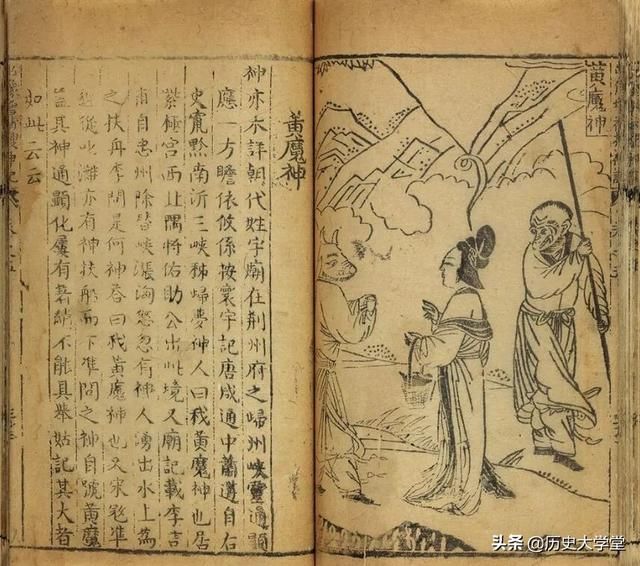 黃魔神
黃魔神
神亦未詳朝代姓字廟在荆州府之歸州峽靈通顯
應一方瞻依攸係按寰宇記唐咸通中蕭遘自右
史竄黔南沂三峽秭歸夢神人曰我黃魔神也居
紫極宫西北隅將佑助公出此境又廟記載李吉
甫自忠州除替峽漲洶怒忽有神人湧出水上為
之扶舟李問是何神答曰我黃魔神也又宋寇準
從此灘亦有神扶船而下準問之神自號黃魔
盖其神通顯化屢有著績不能具舉姑記其大者
如此云云
头条 @历史大学堂